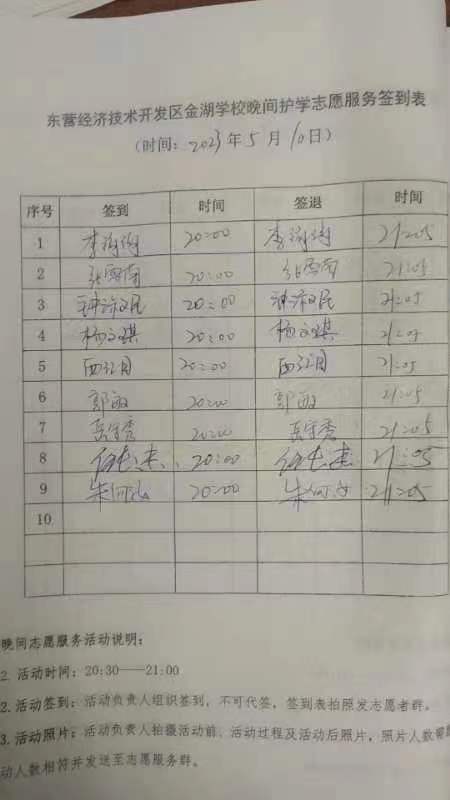 东营经济技术开发区金湖学校晚间护学志愿服务签到表
(时间: 2023 年 5 月 10日)
序号 签到 时间 签退 时间
1 20:00 21:05
2 20:00 21:05
3 20:00 21:05
4 杨文祺 20:00 杨文祺 21:05
5 20:00 21:05
6 郭敏 20:00 郭敏 21:05
7 岳学秀 20:00 岳学秀 21:05
8 20:00 21:05
9 20:00 21:05
10
晚间志愿服务活动说明:
2. 活动时间: 20:30——21:00
2. 活动签到: 活动负责人组织签到, 不可代签, 签到表拍照发志愿者群。
3. 活动照片: 活动负责人拍摄活动前、活动过程及活动后照片, 照片人数需
动人数相符并发送至志愿服务群。